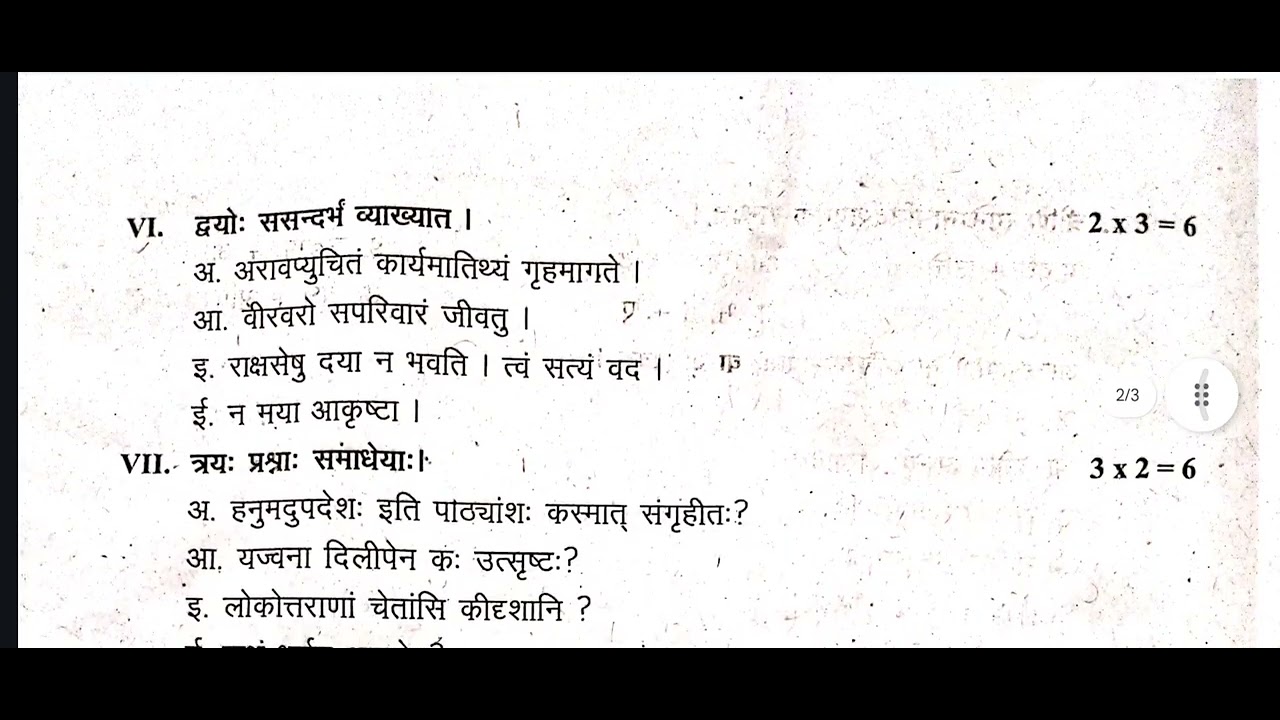 VI. द्वयोः ससन्दर्भं व्याख्यात । 2 x 3 = 6
अ. अरावप्युचितं कार्यमातिथ्यं गृहमागते ।
आ. वीरवरो सपरिवारं जीवतु ।
इ. राक्षसेषु दया न भवति । त्वं सत्यं वद ।
ई. न मया आकृष्टा ।
2/3
VII. त्रयः प्रश्नाः समाधेयाः। 3 x 2 = 6
अ. हनुमदुपदेशः इति पाठ्यांशः कस्मात् संगृहीतः?
आ. यज्वना दिलीपेन कः उत्सृष्टः?
इ. लोकोत्तराणां चेतांसि कीदृशानि ?